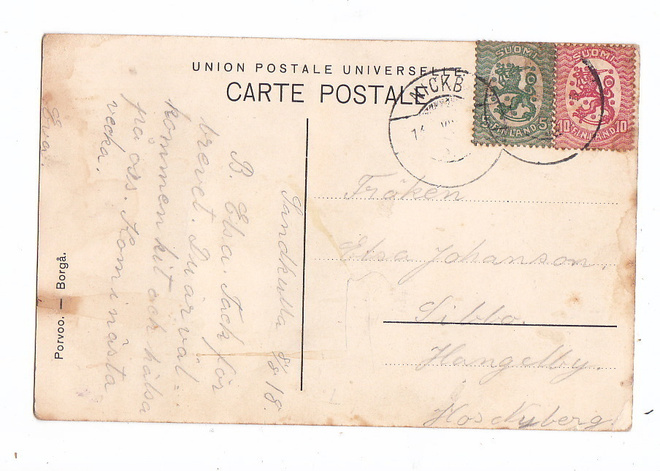 UNION POSTALE UNIVERSELLE
CARTE POSTALE
NICKB
14
SUOMI
5 FINLAND 5
SUOMI
10 FINLAND 10
Sandkulla 8/8 18.
B. Elsa. Tack för
brevet. Du är väl.
kommen hit och hälsa
på oss. Kom i nästa
vecka.
Eva.
Fröken
Elsa Johanson.
Sibbo.
Hangelby.
Hos Nyberg
Porvoo. — Borgå.